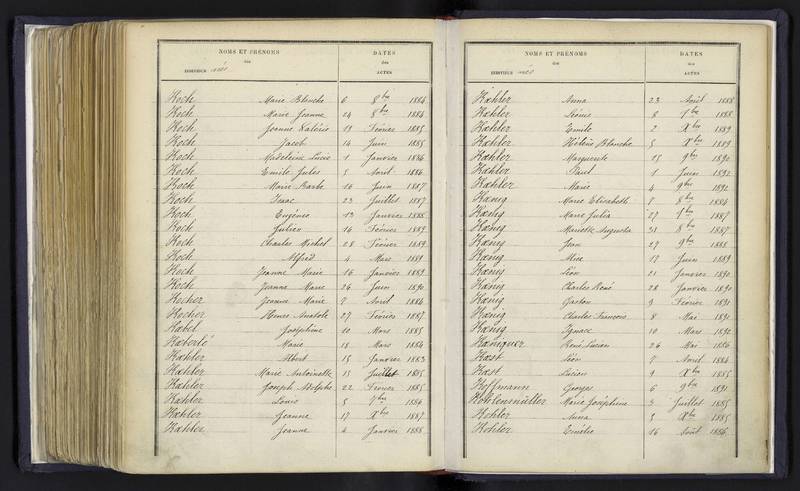 NOMS ET PRÉNOMS
des
INDIVIDUS nés
DATES
des
ACTES
Koch Marie Blanche 6 8bre 1884
Koch Marie Jeanne 24 8bre 1884
Koch Jeanne Valérie 19 Février 1885
Koch Jacob 14 Juin 1885
Koch Madeleine Lucie 1 Janvier 1886
Koch Emile Jules 5 Avril 1886
Koch Marie Barbe 16 Juin 1887
Koch Isaac 23 Juillet 1887
Koch Eugénie 13 Janvier 1888
Koch Julien 16 Février 1889
Koch Charles Michel 28 Février 1889
Koch Alfred 4 Mars 1889
Koch Jeanne Marie 16 Janvier 1889
Koch Jeanne Marie 26 Juin 1890
Kocher Jeanne Marie 7 Avril 1886
Kocher Henri Anatole 27 Février 1887
Kœbel Joséphine 10 Mars 1885
Kœberlé Marie 18 Mars 1884
Kœhler Albert 15 Janvier 1883
Kœhler Marie Antoinette 15 Juillet 1885
Kœhler Joseph Adolphe 22 Février 1885
Kœhler Louis 5 7bre 1886
Kœhler Jeanne 17 Xbre 1887
Kœhler Jeanne 4 Janvier 1888
NOMS ET PRÉNOMS
des
INDIVIDUS nés
DATES
des
ACTES
Kœhler Anna 23 Avril 1888
Kœhler Léonie 8 7bre 1888
Kœhler Emile 2 Xbre 1889
Kœhler Hélène Blanche 5 Xbre 1889
Kœhler Marguerite 15 9bre 1890
Kœhler Paul 1 Juin 1892
Kœhler Marie 4 9bre 1892
Kœnig Marie Elisabeth 7 8bre 1884
Kœnig Marie Julia 27 7bre 1887
Kœnig Mariette Augusta 31 8bre 1887
Kœnig Jean 27 9bre 1888
Kœnig Alice 17 Juin 1889
Kœnig Léon 21 Janvier 1890
Kœnig Charles René 28 Janvier 1890
Kœnig Gaston 9 Février 1891
Kœnig Charles François 8 Mai 1891
Kœnig Ignace 10 Mars 1892
Kœniguer René Lucien 26 Mai 1886
Kœst Léon 7 Avril 1884
Kœst Lucien 9 Xbre 1885
Koffmann Georges 6 9bre 1891
Kohlenmüller Marie Joséphine 3 Juillet 1885
Kohler Anna 5 Xbre 1885
Kohler Emélie 16 Août 1886